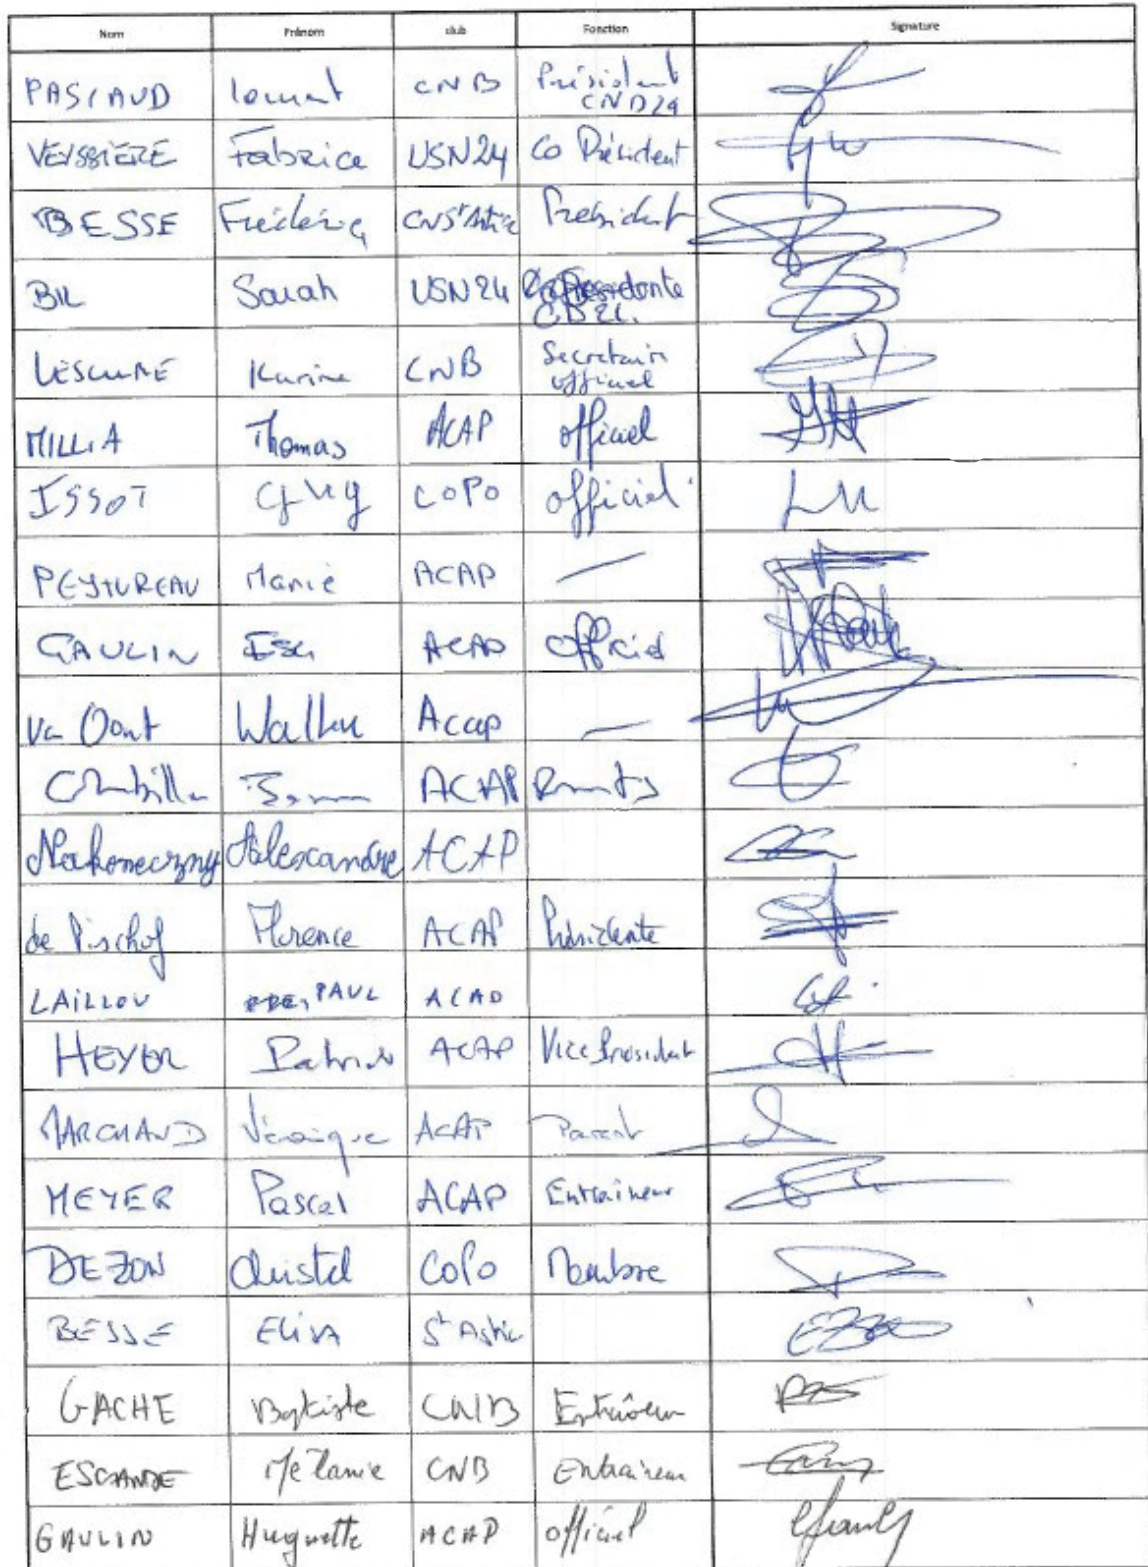 Nom Prénom club Fonction Signature
PASCAUD CNB Président
CND24
VEYSSIÈRE Fabrice USN24 Co Président
BESSE Frédéric CNS'Astie Président
BIL Sarah USN24
LESCURE Karine CNB Secretaire
officiel
MILLIA Thomas ACAP officiel
ISSOT Guy COPO officiel
PEYTUREAU Marie ACAP —
GAULIN ACAP officiel
Acap —
ACAP
Nakoneczny Alexandre ACAP
de Pischof Florence ACAP Présidente
LAILLOU PAUL ACAP
HEYER Patrick ACAP Vice Président
MARCHAND Véronique ACAP Parent
MEYER Pascal ACAP Entraineur
DEZON Christel COPO Membre
BESSE ELISA St Astie
GACHE Baptiste CNB Entraîneur
ESCANDE Mélanie CNB Entraineur
GAULIN Huguette ACAP officiel